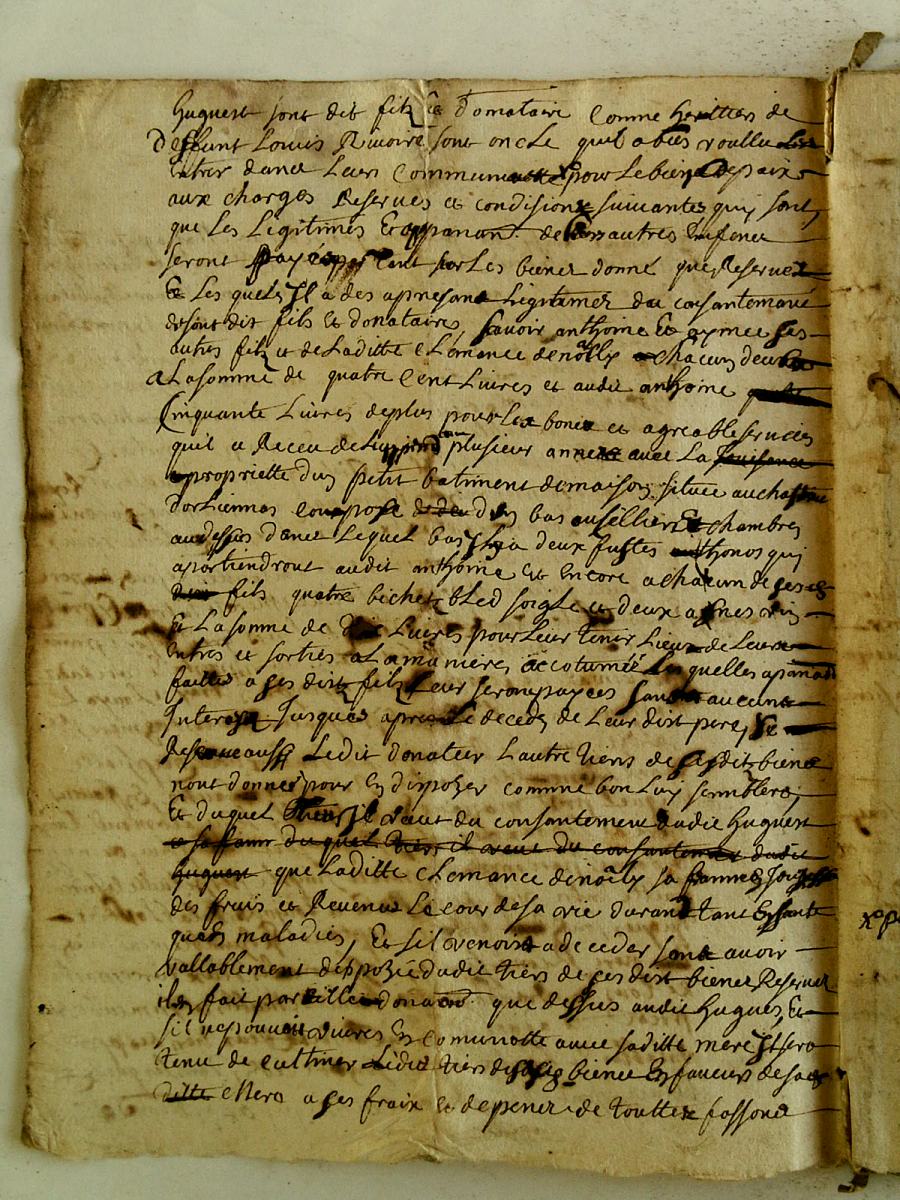 huguest sont dit filz et donataire comme heritiers de
deffunt Louis Rivoire sont oncle quil a bies voullu
entrer dance leur communautté pour le bien de paix
aux charges Reserves et condisions suivantes quy sont
que les Legitimes et appanant de ses autres enfence
seront payés sur les biener donné que Reserver
et les quels Il a des apresant Legitimez du consantemant
desont dit fils et donataires, savoir anthoine et aymee ses
autres filz et de laditte Clemance denolly a chacun deux
a la somme de quatre cent Livres et audit anthoine
Cinquante Livres deplus pour les bones et agreable services
quil a Receu de luy plusieur annees avec la Juisence
propriette dun petit batiment demaison situee au
dorliennas compose dun bas ou sellier et chambres
audessus dance lequel bas il y a deux fustes thonos quy
apartiendront audit anthoine et encore a chacun de ses
fils quatre bichetz bled soigle et deux asnes vin
et La somme de Livres pour leur tenir Lieux de Leurs
entres et sorties a la maniere accotumée lesquelles apanaà
faittes a ses dist filz leur seront payees sans aucune
Interest Jusques apres le decedz de Leur dist pere, se
Reserve aussy Ledit donateur Lautre tiers de sesdit biens
nont donnes pour en dispozer comme bon Luy semblera,
Et duquel tiers Il veut du consantement dudit huguest
duquel tiers il veut du consantemant dudit
huguest que laditte Clemance denolly sa famme Jouisse
des fruis et Revenus Le cour de sa vie durant tant en sante
quen maladies, Et sil venoist a deceder sans avoir
vallablement dispozé dudit tiers de ces dist biener Reserver
il en fait pareille donaon que dessus audit hugues, Et
sil ne pouvoit vivres en comunotte avec saditte mere Il sera
tenu de cultiver Ledit tiers de biens en faveurs de sa
ditte Mere a ses fraix et depener de touttes fassons